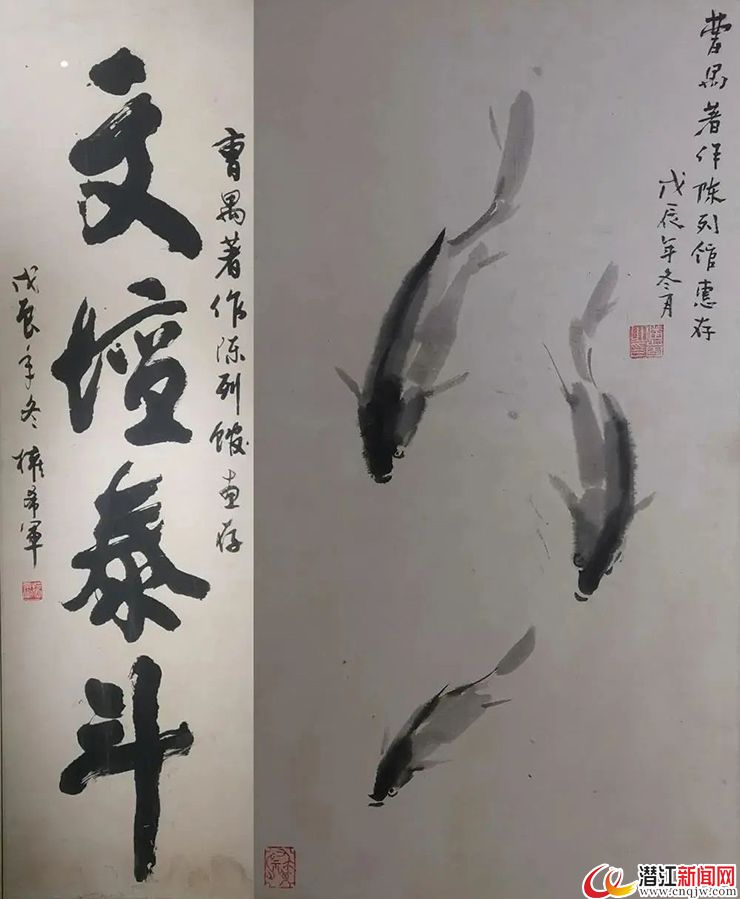 文壇泰斗
曹禺著作陈列馆惠存
戊辰年冬 权希军
曹禺著作陈列馆惠存
戊辰年冬月
潜江新闻网
www.cnqjw.com